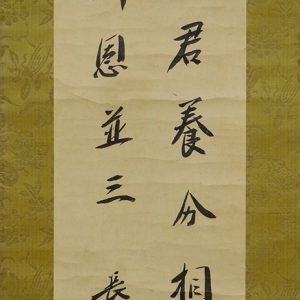 君養分相
恩並三長